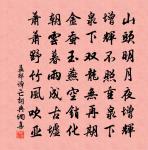 山頭明月夜增輝
增輝不照重泉下
泉下雙龍無再期
金蚕玉燕空銷化
朝雲暮雨成古墟
蕭蕭野竹風吹亞
孟郊詩